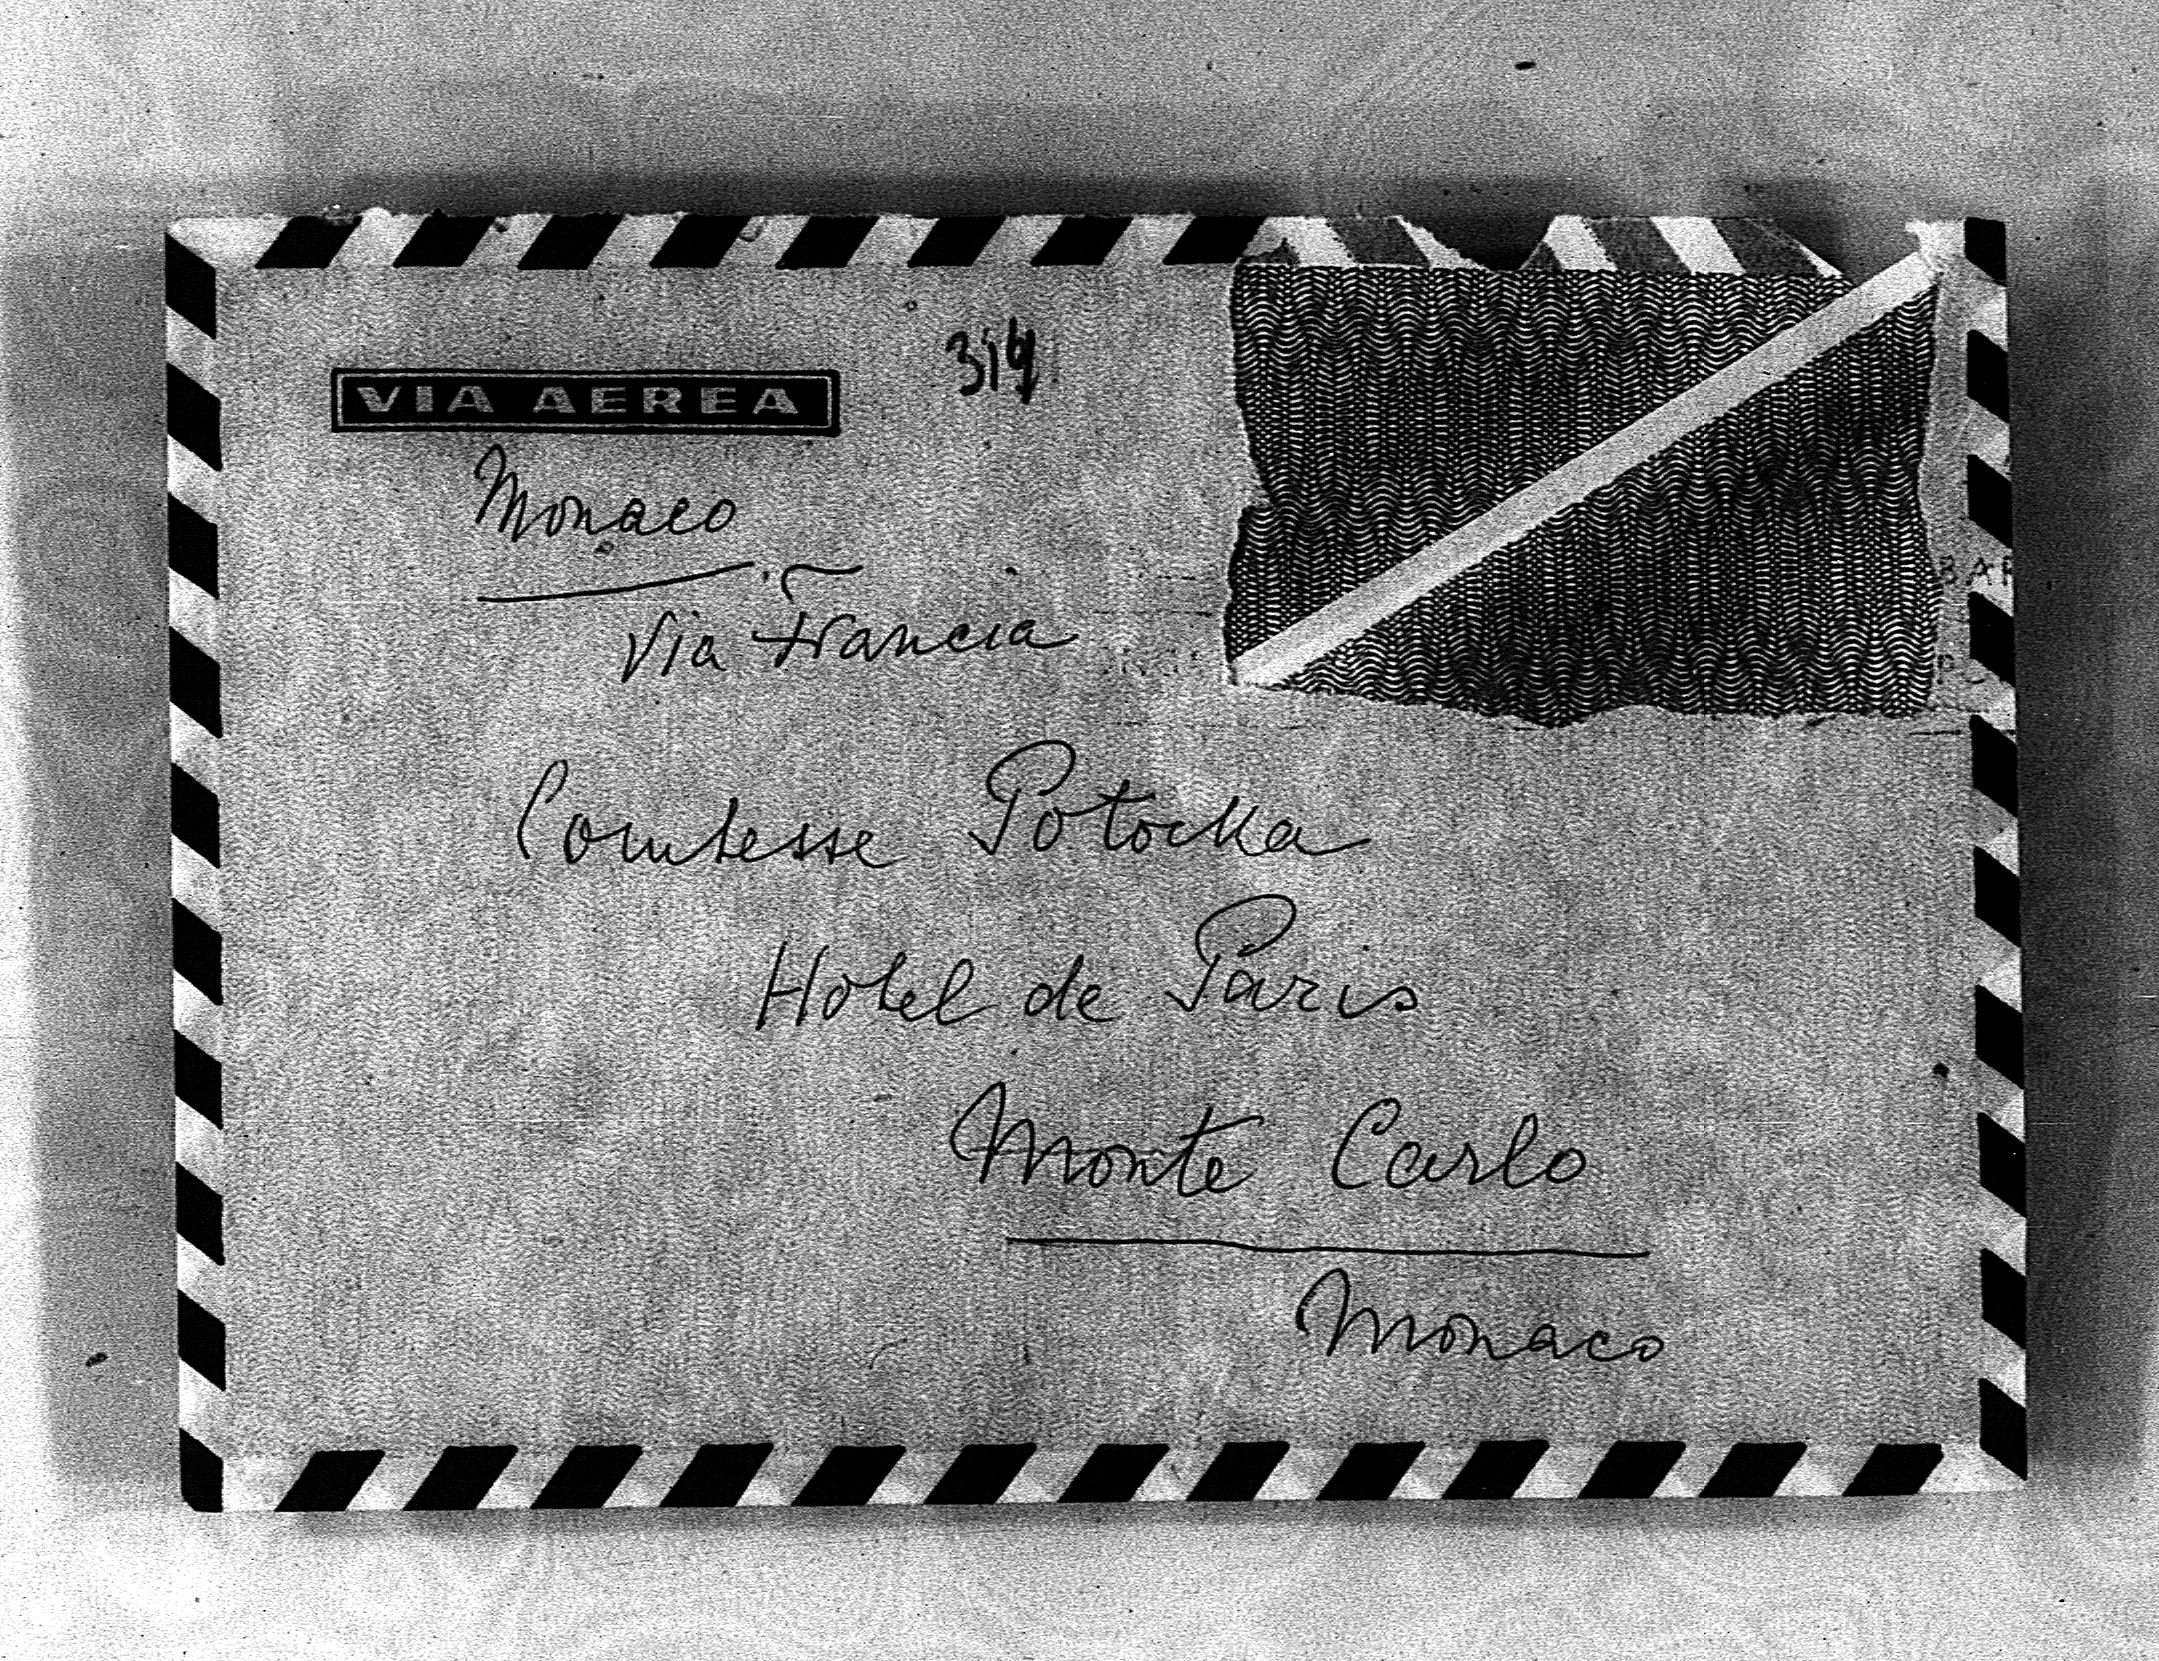 VIA AEREA
Monaco
Via Francia
Comtesse Potocka
Hotel de Paris
Monte Carlo
Monaco